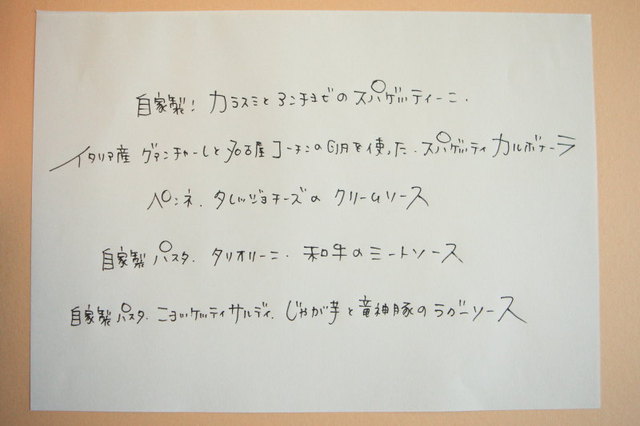 自家製! カラスミとアンチョビのスパゲッティーニ.
イタリア産 グアンチャーレと名古屋コーチンの卵を使った. スパゲッティ カルボナーラ
ペンネ. タレッジョチーズの クリームソース
自家製 パスタ. タリオリーニ. 和牛のミートソース
自家製 パスタ. ニョッケッティサルディ. じゃが芋と竜神豚のラグーソース